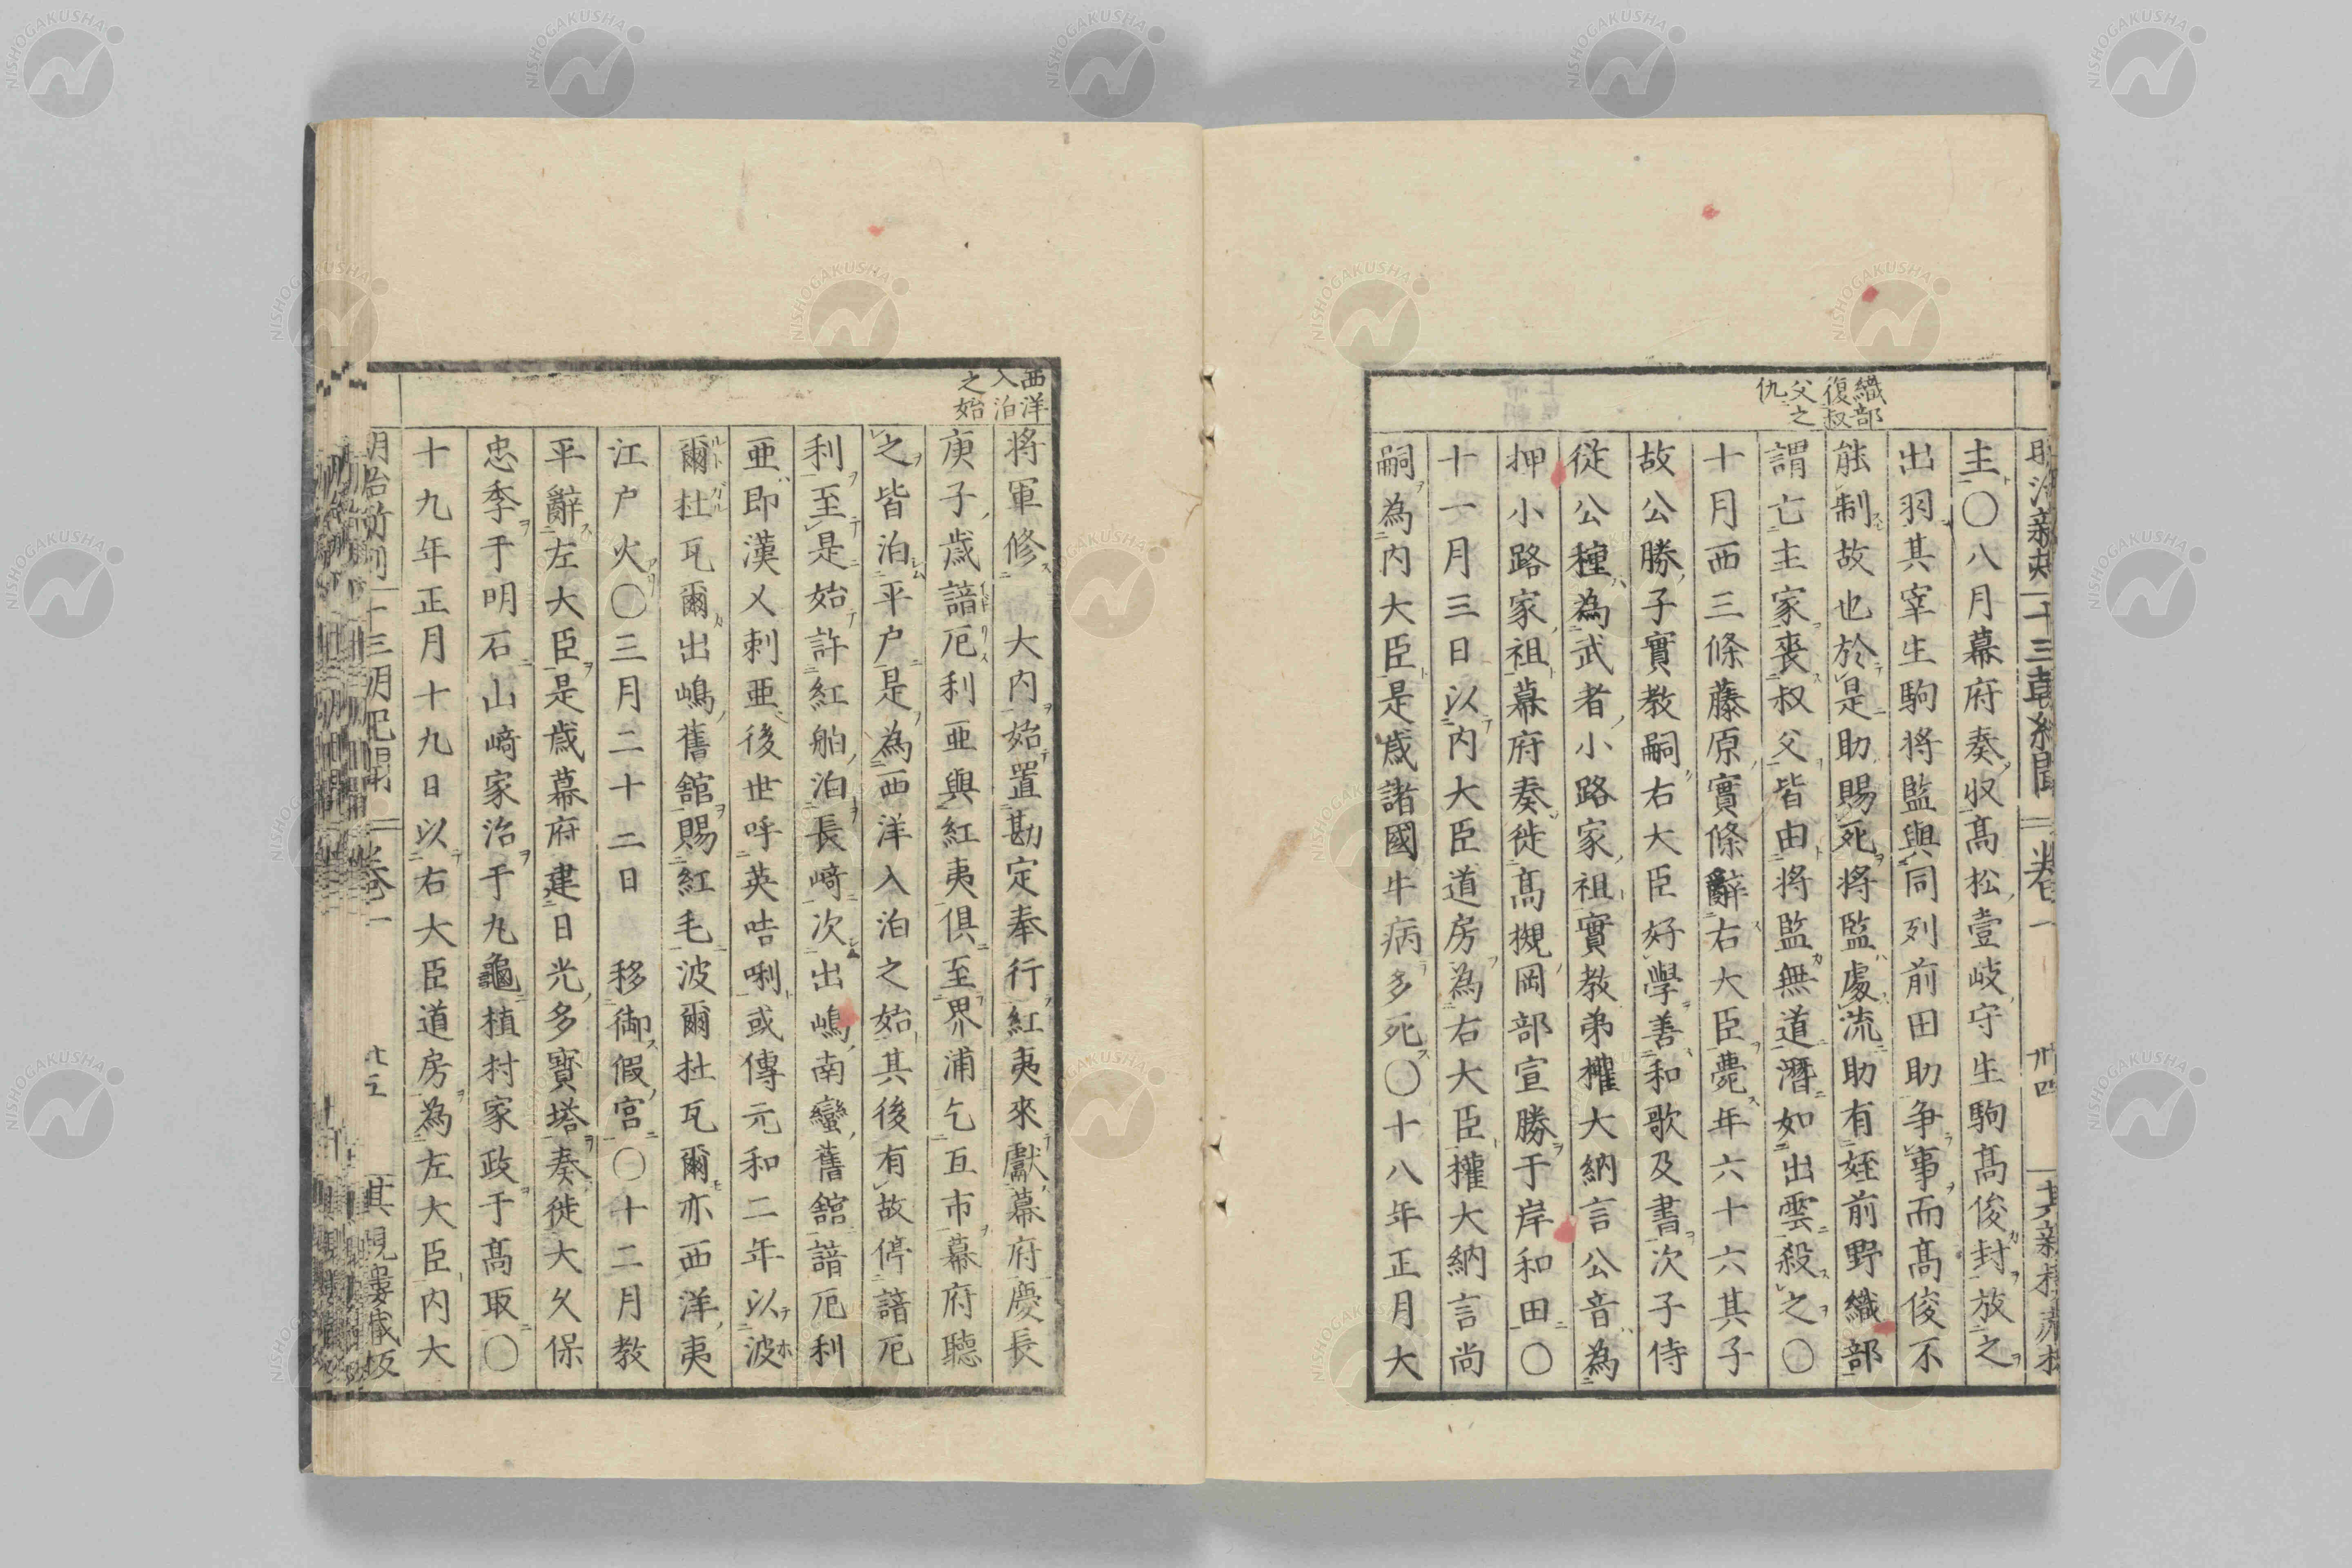 織部
復叔
父之
仇
主〇八月幕府奏収髙松壹岐守生駒髙俊封放之
出羽其宰生駒将監與同列前田助争事而髙俊不
能制故也於是助賜死将監處流助有姪前野織部
謂亡主家喪叔父皆由将監無道潛如出雲殺之〇
十月西三條藤原實條辭右大臣薨年六十六其子
故公勝子實教嗣右大臣好學善和歌及書次子侍
従公種為武者小路家祖實教弟權大納言公音為
押小路家祖幕府奏徙髙槻岡部宣勝于岸和田〇
十一月三日以内大臣道房為右大臣權大納言尚
嗣為内大臣是歳諸國牛病多死〇十八年正月大
西洋
入泊
之始
将軍修大内始置勘定奉行紅夷來獻幕府慶長
庚子歳諳厄利亜與紅夷俱至界浦乞互市幕府聽
之皆泊平户是為西洋入泊之始其後有故停諳厄
利至是始許紅舶泊長﨑次出嶋南蠻舊舘諳厄利
亜即漢乂刺亜後世呼英咭唎或傳元和二年以波
爾杜瓦爾出嶋舊舘賜紅毛波爾杜瓦爾亦西洋夷
江户火〇三月二十二日移御假宮〇十二月教
平辭左大臣是歳幕府建日光多寶塔奏徙大久保
忠季于明石山﨑家治于丸龜植村家政于髙取〇
十九年正月十九日以右大臣道房為左大臣内大